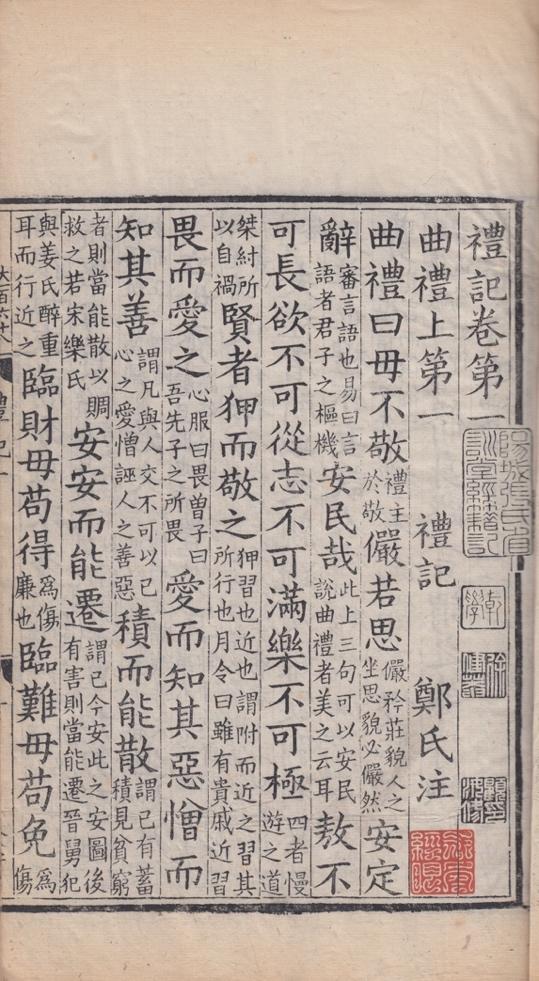 禮記卷第一
曲禮上第一　禮記　鄭氏注
曲禮曰毋不敬禮主於敬儼若思儼矜莊貌人之坐思貌必儼然安定
辭審言語也易曰言語者君子之樞機安民哉此上三句可以安民說曲禮者美之云耳敖不
可長欲不可從志不可滿樂不可極四者慢遊之道
桀紂所以自禍賢者狎而敬之狎習也近也謂附而近之習其所行也月令曰雖有貴戚近習
畏而愛之心服曰畏曾子曰吾先子之所畏愛而知其惡憎而
知其善謂凡與人交不可以己心之愛憎誣人之善惡積而能散謂己有蓄積見貧窮
者則當能散以賙救之若宋樂氏安安而能遷謂己今安此之安圖後有害則當能遷晉舅犯
與姜氏醉重耳而行近之臨財毋苟得爲傷廉也臨難毋苟免爲傷
禮記一